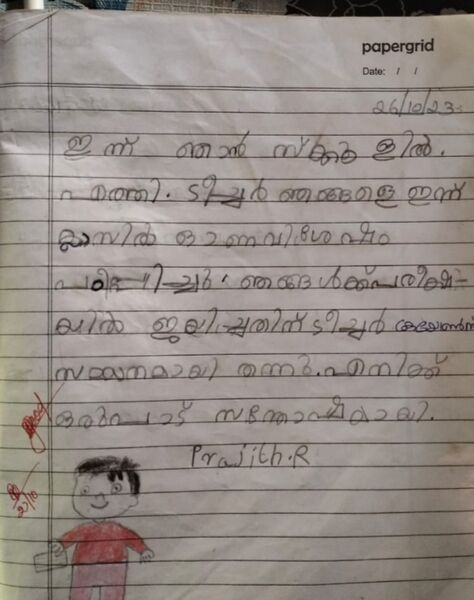 papergrid
Date: / /
26/10/23
ഇന്ന് ഞാൻ സ്ക്കൂ ളിൽ.
എത്തി. ടീച്ചർ ഞങ്ങളെ ഇന്ന്
ക്ലാസിൽ ഓണവിശേഷം
ഞങ്ങൾക്ക് പരീക്ഷ
യിൽ ജയിച്ചതിന് ടീച്ചർ
സമ്മനമായി തന്നു. എനിക്ക്
ഒരുപാട് സന്തോഷമായി.
Prajith.R
27/10